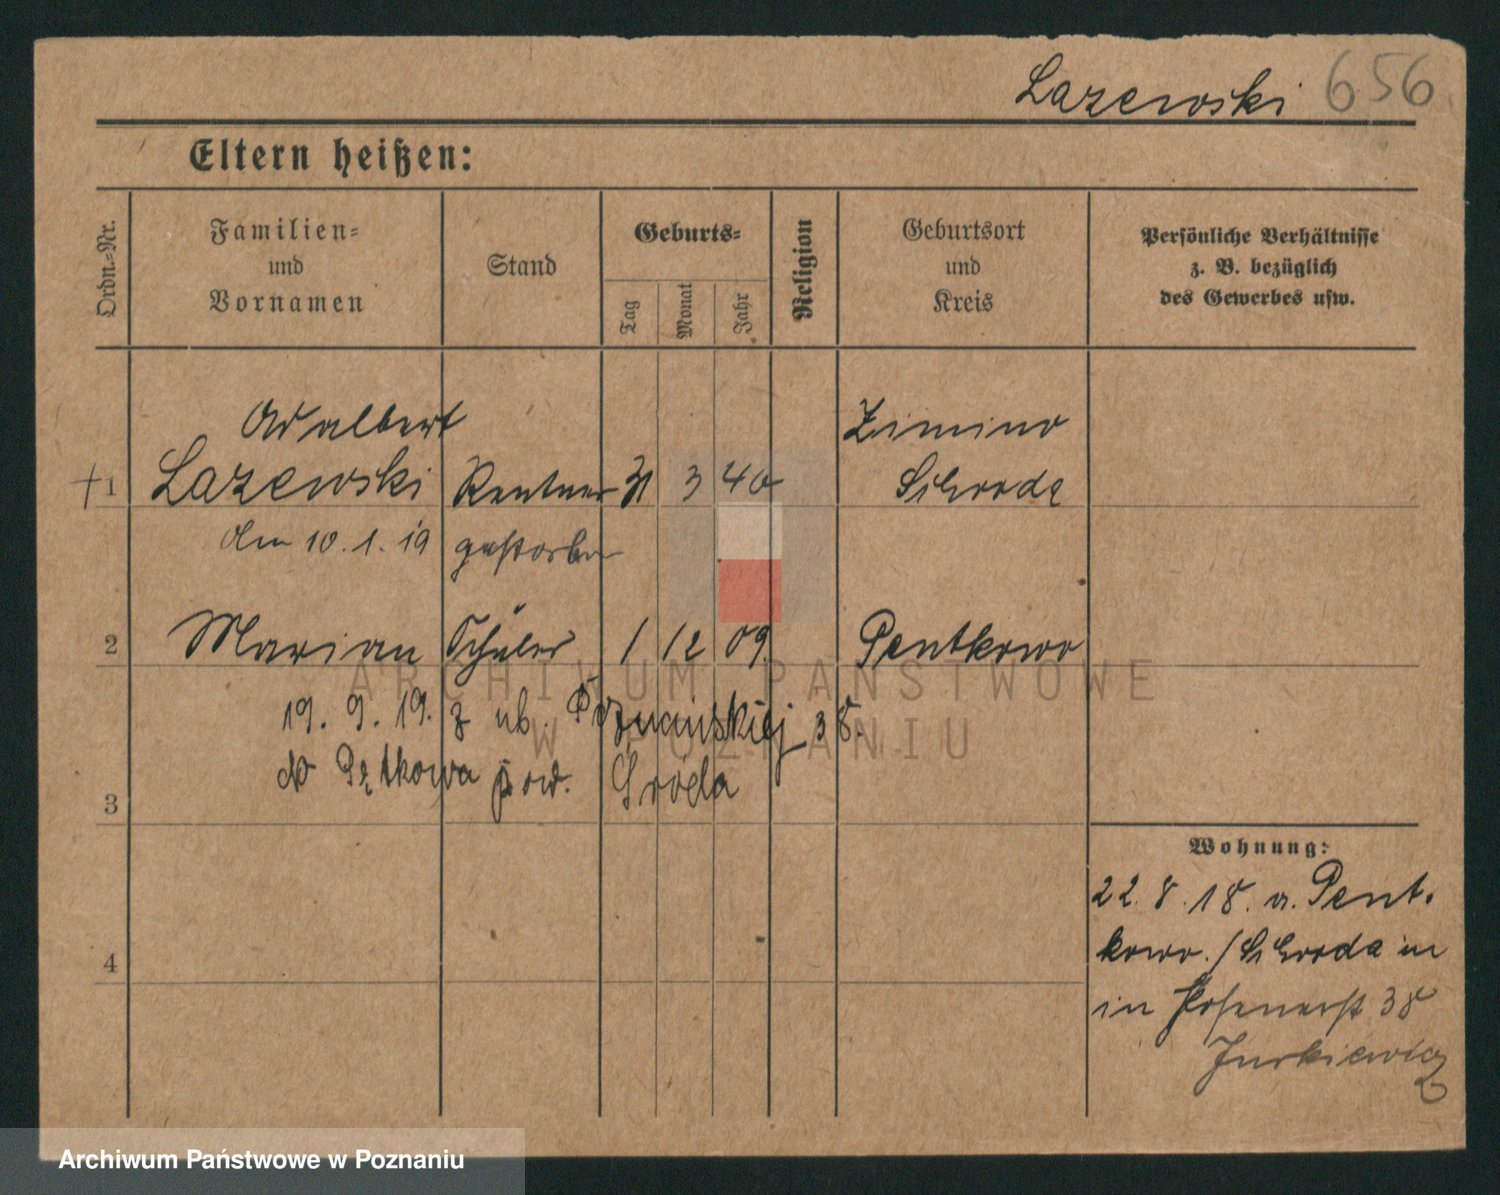 Lazewski 656
Eltern heißen:
Ordn-Nr.
Familien-
und
Vornamen
Stand
Geburts-
Tag
Monat
Jahr
Religion
Geburtsort
und
Kreis
Persönliche Verhältnisse
z. B. bezüglich
des Gewerbes usw.
Adalbert Zimino
+ 1 Lazewski Rentner 31 3 40 Schroda
den 10. 1. 19 gestorben
2 Marian Schüler 1 12 09 Pentkowo
19. 9. 19. z ul. Poznańskiej 38.
do Pętkowa pow. Środa
3
4
Wohnung:
22. 8. 18. a. Pent.
kowo. / Schroda in
in Posenerst 38
Jurkiewicz
ARCHIWUM PAŃSTWOWE
W POZNANIU
Archiwum Państwowe w Poznaniu